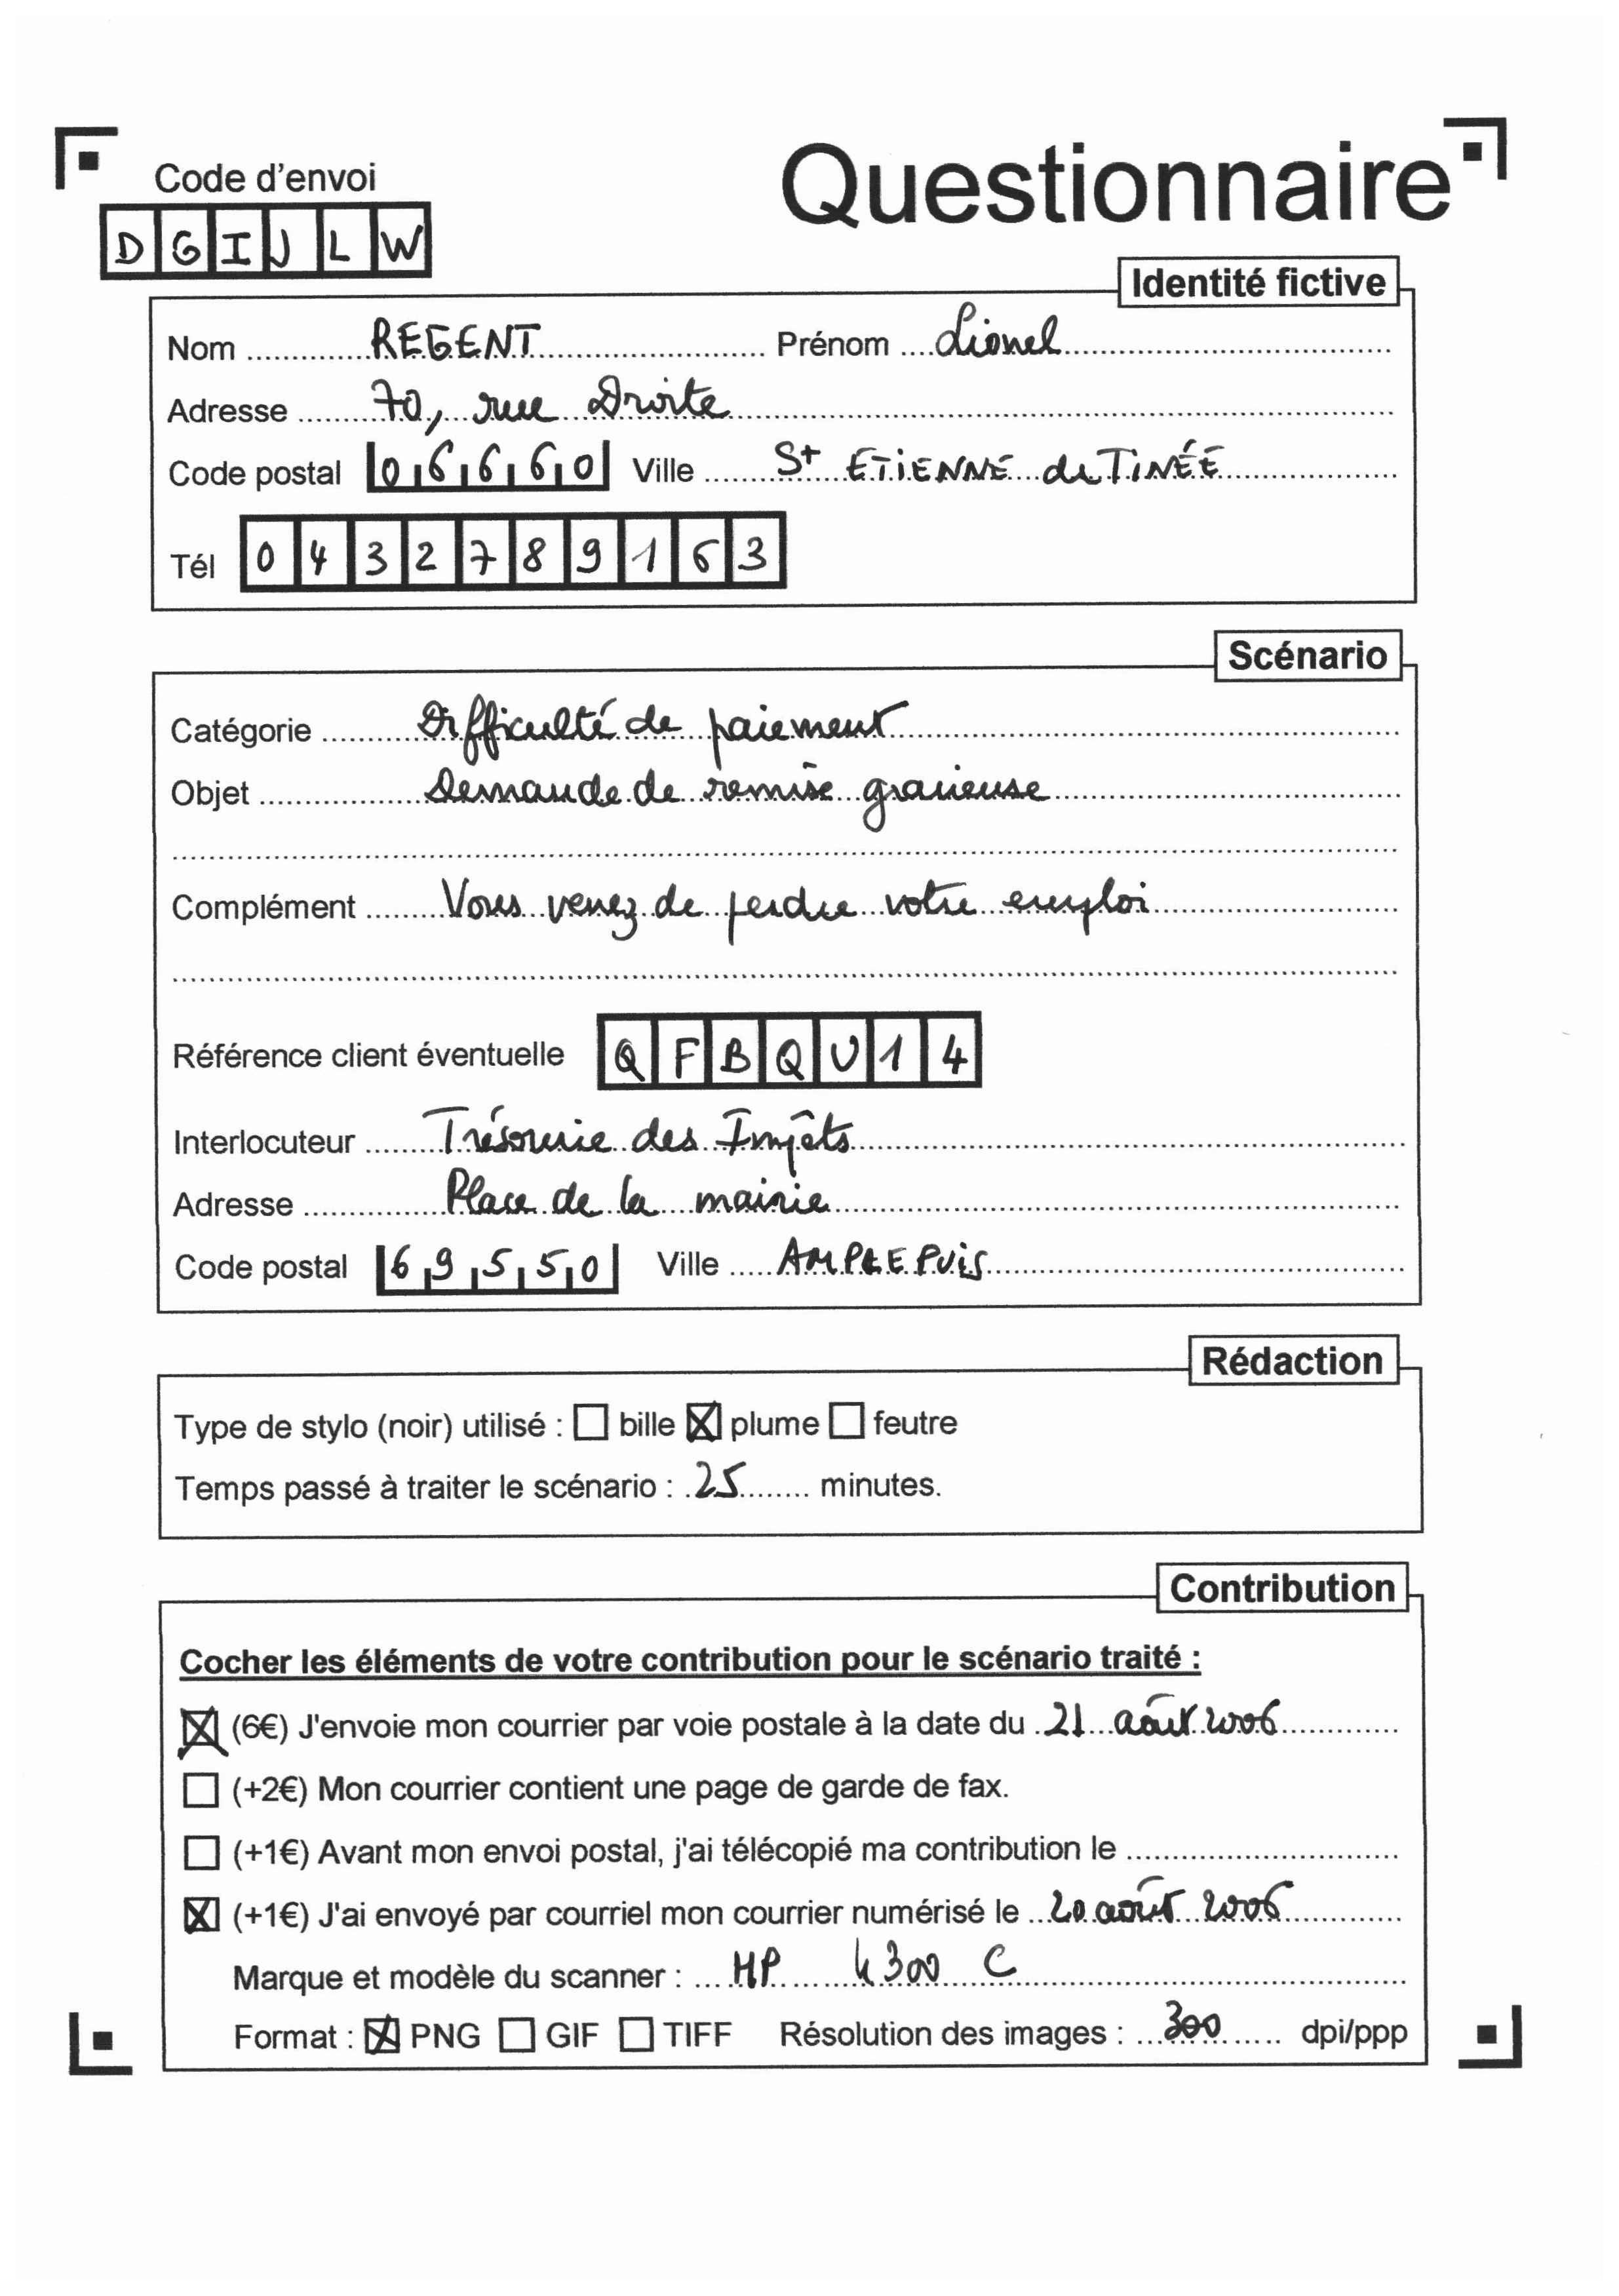 Code d'envoi
Questionnaire
D G I J L W
Identité fictive
Nom REGENT Prénom Lionel
Adresse 70, rue Droite
Code postal 06660 Ville St ETIENNE de TINÉE
Tél 0432789163
Scénario
Catégorie Difficulté de paiement
Objet Demande de remise gracieuse
Complément Vous venez de perdre votre emploi
Référence client éventuelle QFBQU14
Interlocuteur Trésorerie des Impôts
Adresse Place de la mairie
Code postal 69550 Ville AMPLEPUIS
Rédaction
Type de stylo (noir) utilisé : ☐ bille ☒ plume ☐ feutre
Temps passé à traiter le scénario : 25 minutes.
Contribution
Cocher les éléments de votre contribution pour le scénario traité :
☒ (6€) J'envoie mon courrier par voie postale à la date du 21 août 2006
☐ (+2€) Mon courrier contient une page de garde de fax.
☐ (+1€) Avant mon envoi postal, j'ai télécopié ma contribution le
☒ (+1€) J'ai envoyé par courriel mon courrier numérisé le 20 août 2006
Marque et modèle du scanner : HP 4300 C
Format : ☒ PNG ☐ GIF ☐ TIFF Résolution des images : 300 dpi/ppp